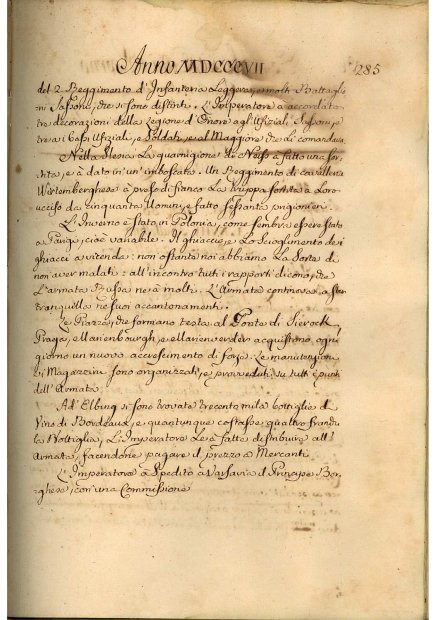 Anno MDCCCVII
285
del 2. Reggimento d'Infanteria Leggera, e molti Battaglio-
ni Sassoni, che si sono distinti. L'Imperatore à accordato
tre decorazioni della Legione d'Onore agl'Ufiziali Sassoni, e
tre a i Bassi Ufiziali, e Soldati, e al Maggiore che li comandava
Nella Slesia la guarnigione di Neiss à fatto una sor-
tita, e à dato in un'imboscata. Un Reggimento di cavalleria
Wirtemberghese à preso di fianco la truppa sortita a Loro
ucciso da cinquanta Uomini, e fatto sessanta prigionieri.
L'Inverno è stato in Polonia, come sembra essere stato
a Parigi, cioè variabile. Il ghiaccio, e Lo Scioglimento dei
ghiacci a vicenda: non ostante noi abbiamo La Sorte di
non aver malati: all'incontro tutti i rapporti dicono, che
L'armata Russa ne à molti. L'Armata continova a star
tranquilla ne suoi accantonamenti.
Le Piazze, che formano testa al Ponte di Sierock,
Praga, e Marienburgh, e Marienverder acquistano ogni
giorno un nuovo accrescimento di forze. Le manutenzioni
ei Magazzini sono organizzati, e proveduti su tutti i punti
dell'Armata.
Ad'Elbing si sono trovate trecento mila bottiglie di
Vino di Bordeaux, e quantunque costasse quattro franchi
la Bottiglia, L'Imperatore Le à fatte distribuire all'
Armata, facendone pagare il prezzo a Mercanti.
L'Imperatore à Spedito a Varsavia il Principe Bor-
ghese, con una Commissione